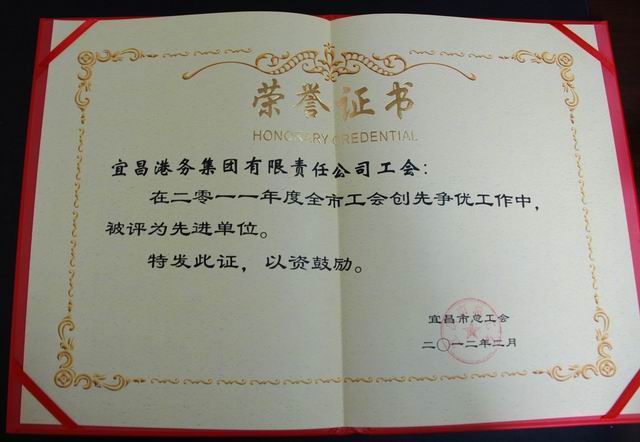 荣誉证书
HONORARY CREDENTIAL
宜昌港务集团有限责任公司工会:
在二零一一年度全市工会创先争优工作中,
被评为先进单位。
特发此证，以资鼓励。
宜昌市总工会
二〇一二年二月